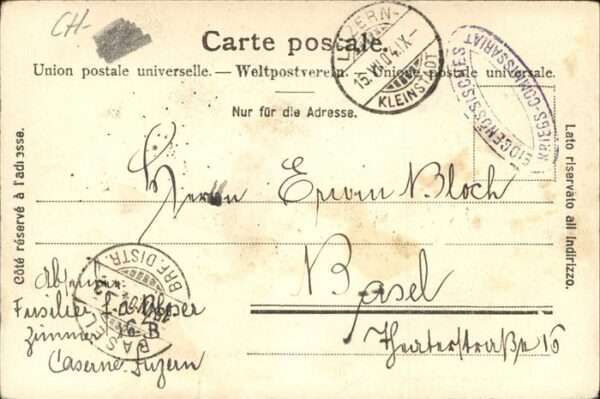 CH-
Carte postale.
Union postale universelle. — Weltpostverein. — Unione postale universale.
Nur für die Adresse.
LUZERN-
15.VI.04.IX-
KLEINSTADT
EIDGENÖSSISCHES
KRIEGS-COMMISSARIAT
Côté réservé à l'adresse.
Lato riservato all'indirizzo.
Herrn Erwin Bloch
Basel
Theaterstraße 16
BASEL
BRF. DISTR.
Füsilier
Zimmer 16 B
Caserne Luzern